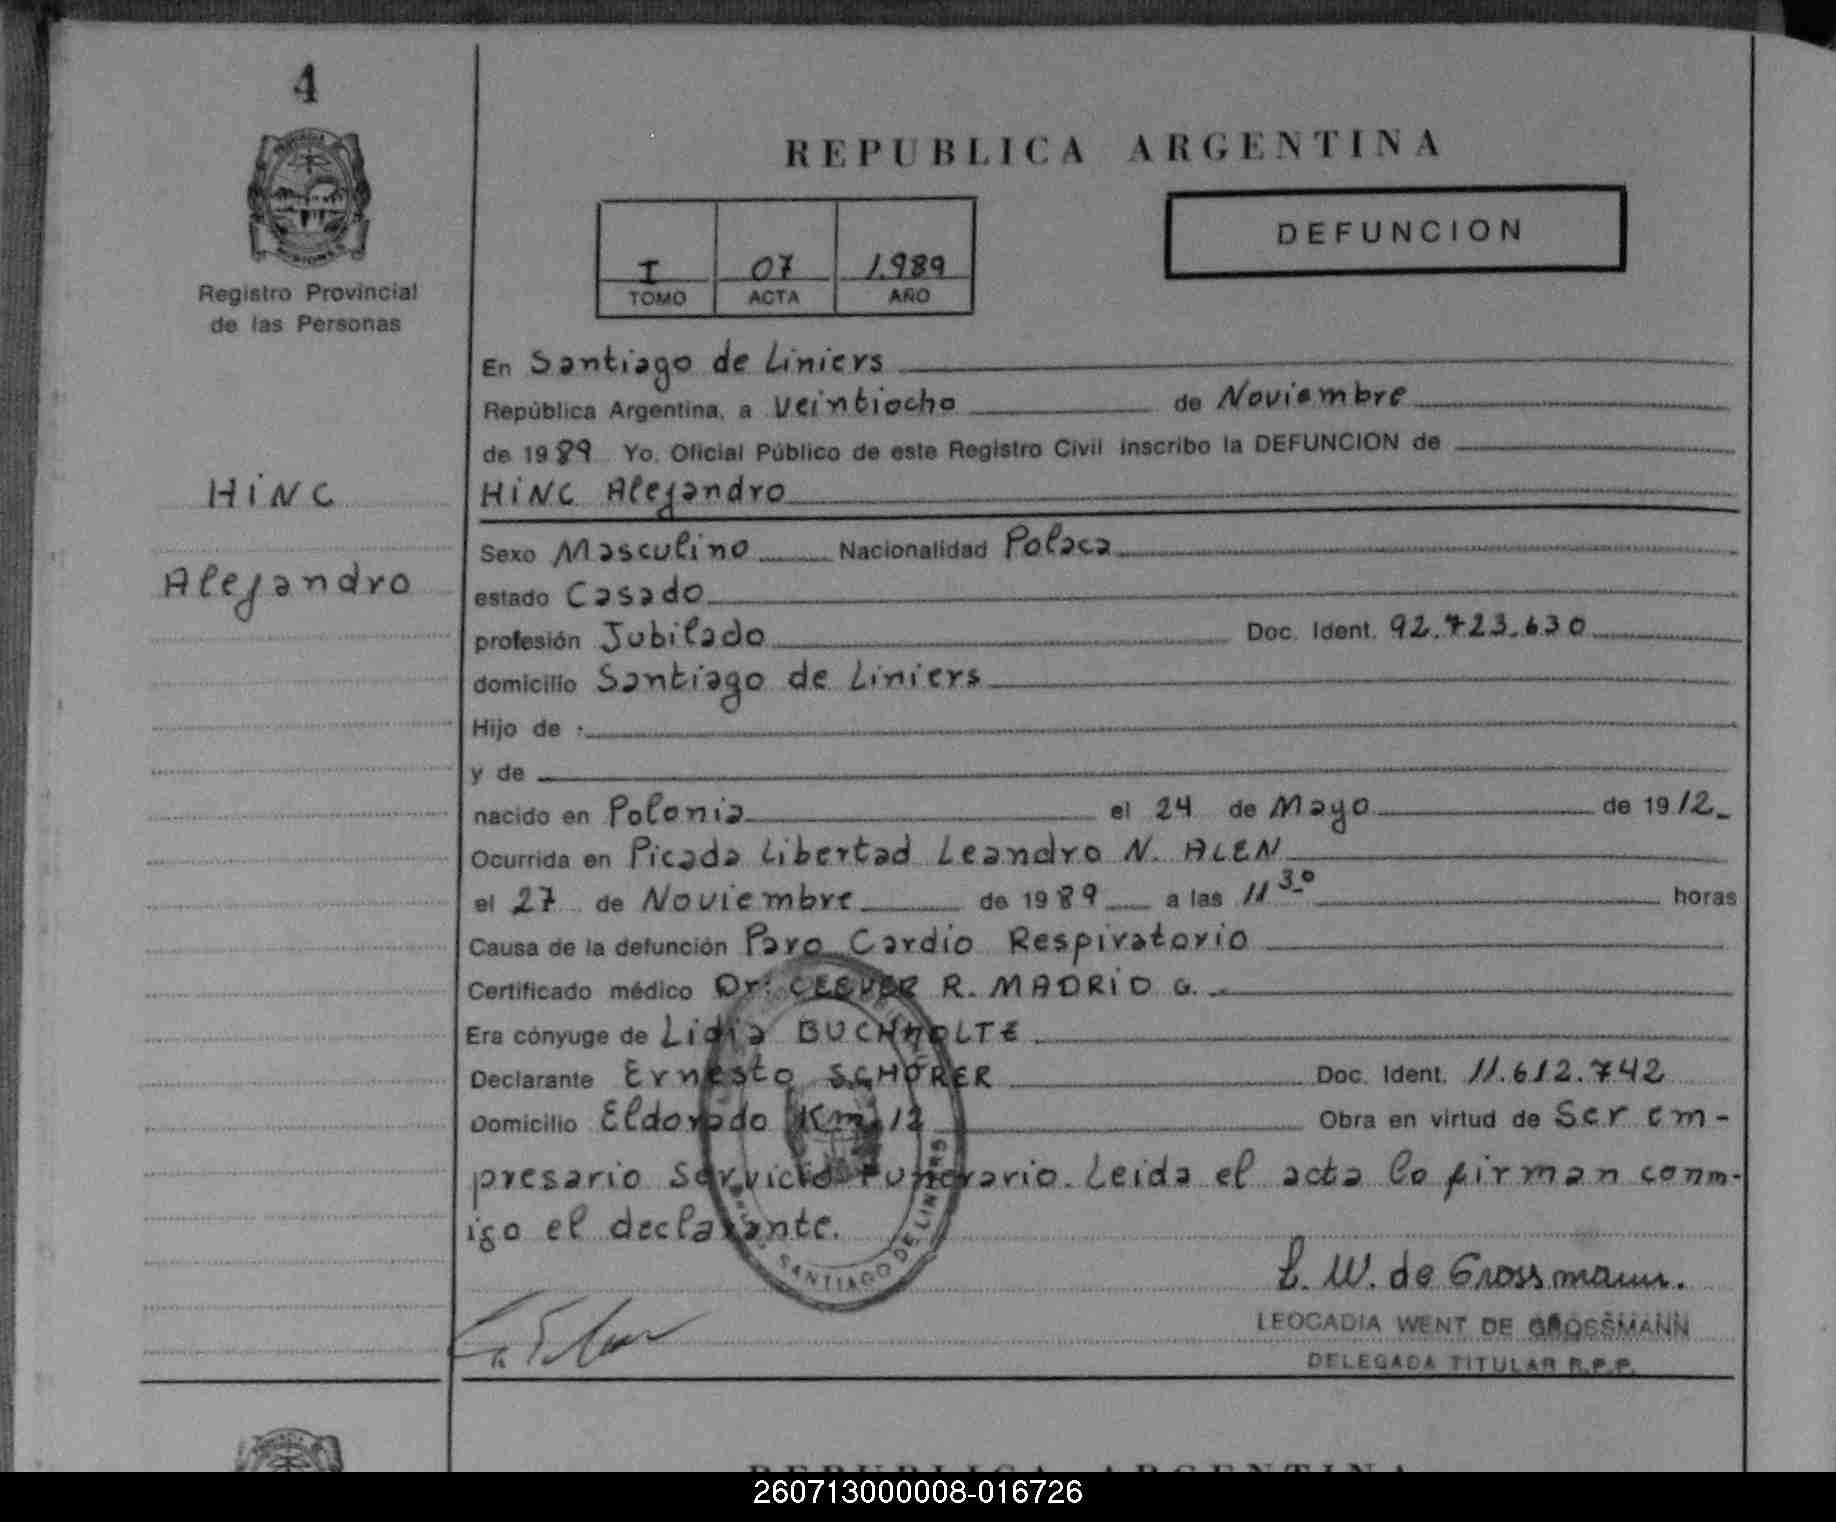 4
Registro Provincial
de las Personas
HINC
Alejandro
REPUBLICA ARGENTINA
I 07 1.989
TOMO ACTA AÑO
DEFUNCION
En Santiago de Liniers
República Argentina, a veintiocho de Noviembre
de 1989 Yo. Oficial Público de este Registro Civil inscribo la DEFUNCION de
HINC Alejandro
Sexo Masculino Nacionalidad Polaca
estado Casado
profesión Jubilado Doc. Ident. 92.723.630
domicilio Santiago de Liniers
Hijo de
y de
nacido en Polonia el 24 de Mayo de 1912_
Ocurrida en Picada Libertad Leandro N. ALEN
el 27 de Noviembre de 1989 a las 11 30 horas
Causa de la defunción Paro Cardio Respiratorio
Certificado médico Dr: CLEVER R. MADRID G.
Era cónyuge de Lidia BUCHHOLTE
Declarante Ernesto SCHÖRER Doc. Ident. 11.612.742
Domicilio Eldorado Km 12 Obra en virtud de Ser em-
presario Servicio Funerario. Leida el acta lo firman conm-
igo el declarante.
SANTIAGO DE LINIERS
L. W. de Grossmann.
LEOCADIA WENT DE GROSSMANN
DELEGADA TITULAR R.P.P.
REPUBLICA ARGENTINA
260713000008-016726